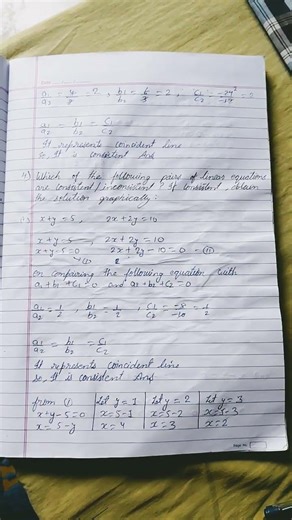 a1/a2 = 4/2 = 2, b1/b2 = 6/3 = 2, c1/c2 = -24/-12 = 2
a1/a2 b1/b2 = c1/c2
It represents coincident line
so, It is consistent Ans
4) Which of the following pairs of linear equations
are consistent/inconsistent? If consistent, obtain
the solution graphically:
x+y=5, 2x+2y=10
x+y=5, 2x+2y=10
x+y-5=0 2x+2y-10=0 -(ii)
-(i)
on comparing the following equation with
a1+b1+c1=0 and a2+b2+c2=0
a1/a2 = 1/2, b1/b2 = 1/2, c1/c2 = -5/-10 = 1/2
a1/a2 = b1/b2 = c1/c2
It represents coincident line
so, It is consistent Ans
from (1) Let y=1 Let y=2 Let y=3
x+y-5=0 x=5-1 x=5-2 x=5-3
x=5-y x=4 x=3 x=2